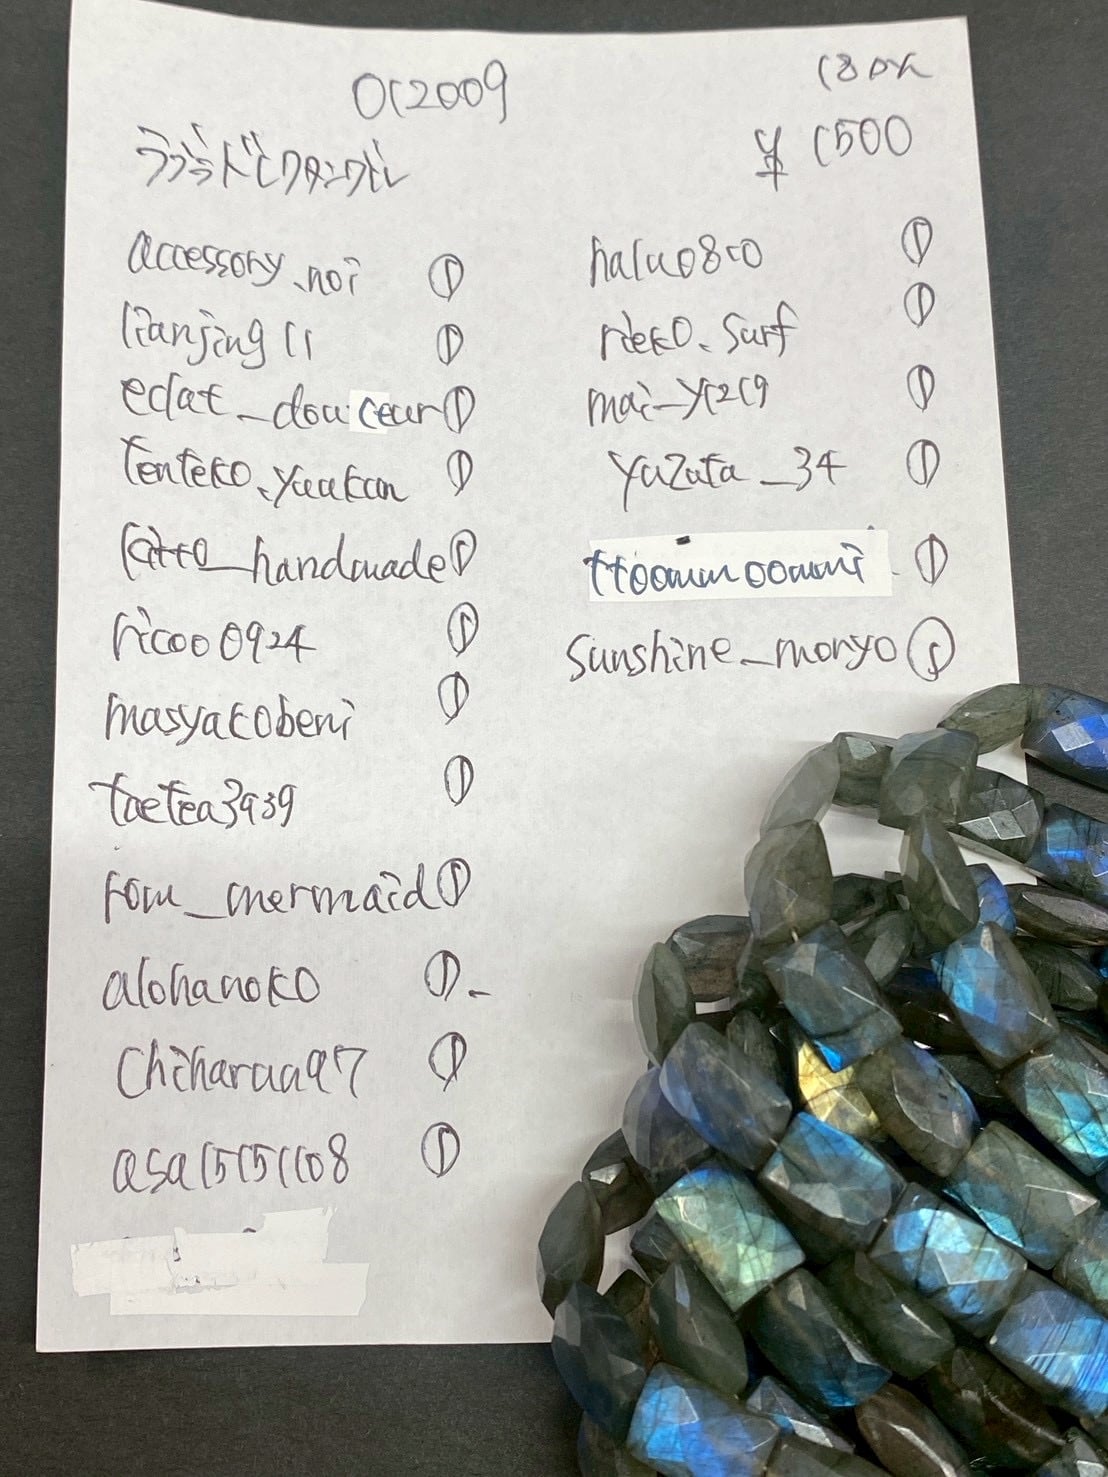 012009
18pk
¥1500
ラブラドレクタングル
accessory.noi ①
lianjing11 ①
eclat_douceur ①
tenteko.yaakan ①
kitto_handmade ①
ricoo0924 ①
masyakobeni ①
taetea3939 ①
rom_mermaid ①
alohanoko ①
chiharua97 ①
asa15151108 ①
halu0810 ①
rieko.surf ①
mai_y1219 ①
yuzuta_34 ①
ttoommoommi ①
sunshine_monyo ①